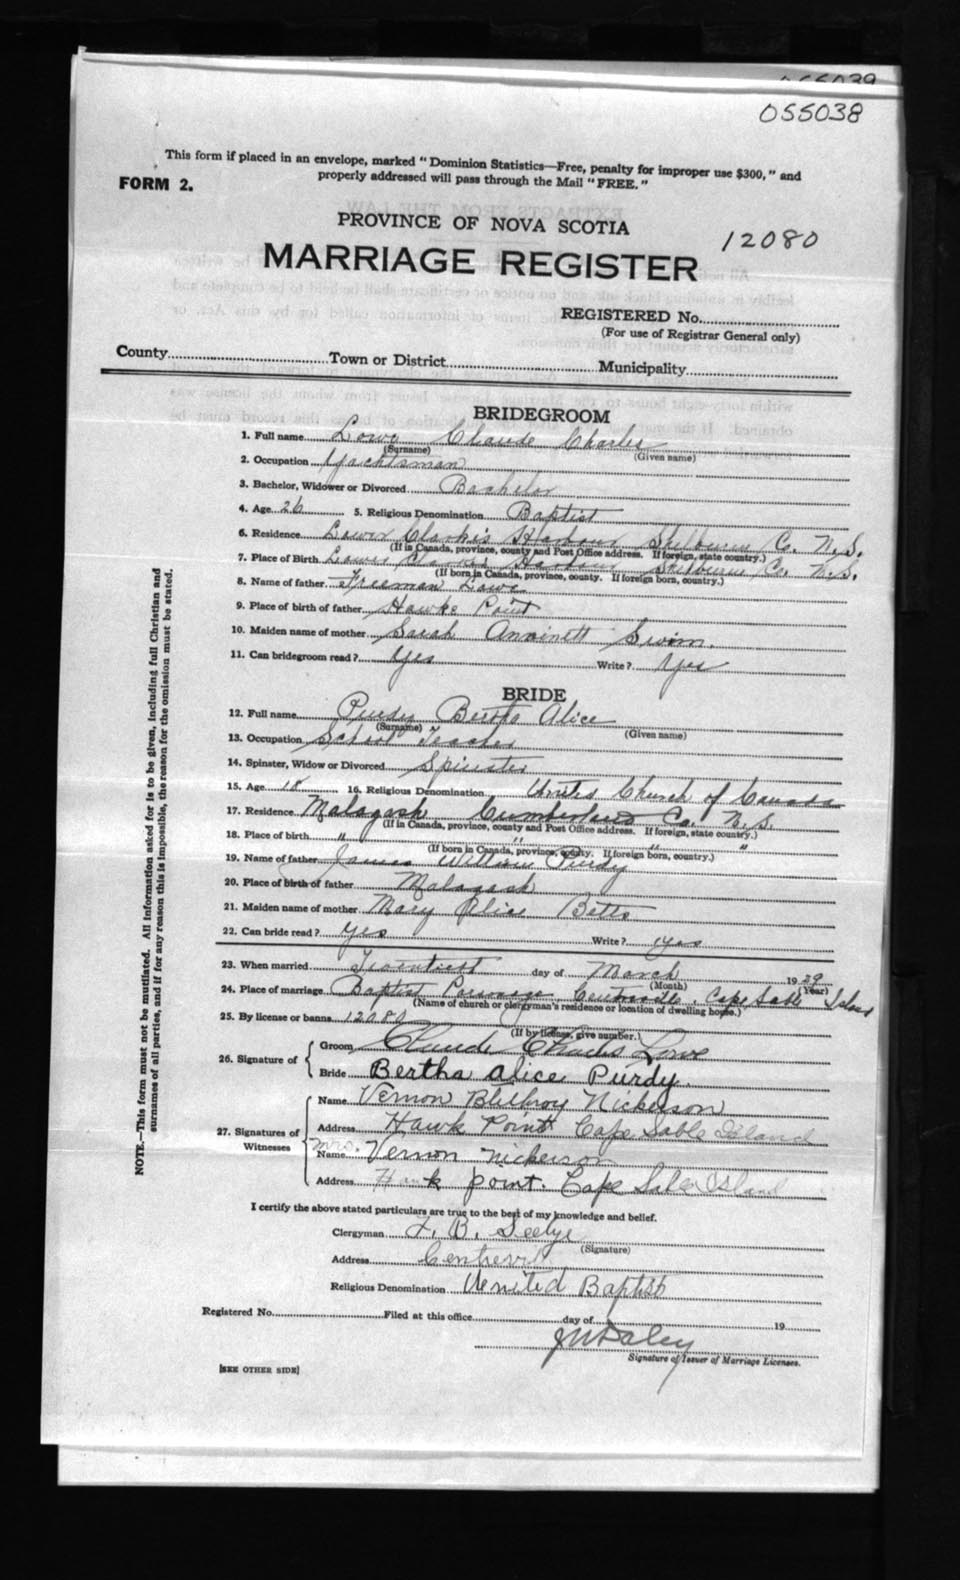 055039
055038
This form if placed in an envelope, marked "Dominion Statistics—Free, penalty for improper use $300," and
FORM 2. properly addressed will pass through the Mail "FREE."
PROVINCE OF NOVA SCOTIA
12080
MARRIAGE REGISTER
REGISTERED No.
(For use of Registrar General only)
County Town or District Municipality
BRIDEGROOM
1. Full name Lowe Claude Charles
(Surname) (Given name)
2. Occupation Yachtsman
3. Bachelor, Widower or Divorced Bachelor
4. Age 26 5. Religious Denomination Baptist
6. Residence Lower Clark's Harbour Shelburne Co. N.S.
(If in Canada, province, county and Post Office address. If foreign, state country.)
7. Place of Birth Lower Clarks Harbour Shelburne Co. N.S.
(If born in Canada, province, county. If foreign born, country.)
8. Name of father Freeman Lowe
9. Place of birth of father Hawks Point
10. Maiden name of mother Sarah Swim.
11. Can bridegroom read? Yes Write? Yes
BRIDE
12. Full name Purdy Bertha Alice
(Surname) (Given name)
13. Occupation School Teacher
14. Spinster, Widow or Divorced Spinster
15. Age 18 16. Religious Denomination United Church of Canada
17. Residence Malagash Cumberland Co. N.S.
(If in Canada, province, county and Post Office address. If foreign, state country.)
18. Place of birth " " " "
(If born in Canada, province, county. If foreign born, country.)
19. Name of father James William Purdy
20. Place of birth of father Malagash
21. Maiden name of mother Mary Alice Betts
22. Can bride read? yes Write? yes
23. When married Twentieth day of March 1939
(Month) (Year)
24. Place of marriage Baptist Parsonage Centreville, Cape Sable Island
(Name of church or clergyman's residence or location of dwelling house.)
25. By license or banns 12080
(If by license, give number.)
26. Signature of Groom Claude Charles Lowe
Bride Bertha Alice Purdy.
27. Signatures of Witnesses
Name Vernon Nickerson
Address Hawk Point Cape Sable Island
Name Mrs. Vernon Nickerson
Address Hawk point. Cape Sable Island
I certify the above stated particulars are true to the best of my knowledge and belief.
Clergyman F. B. Seelye
(Signature)
Address Centrevil
Religious Denomination United Baptist
Registered No. Filed at this office day of 19
Signature of Issuer of Marriage Licenses.
[SEE OTHER SIDE]
NOTE.—This form must not be mutilated. All information asked for is to be given, including full Christian and
surnames of all parties, and if for any reason this is impossible, the reason for the omission must be stated.